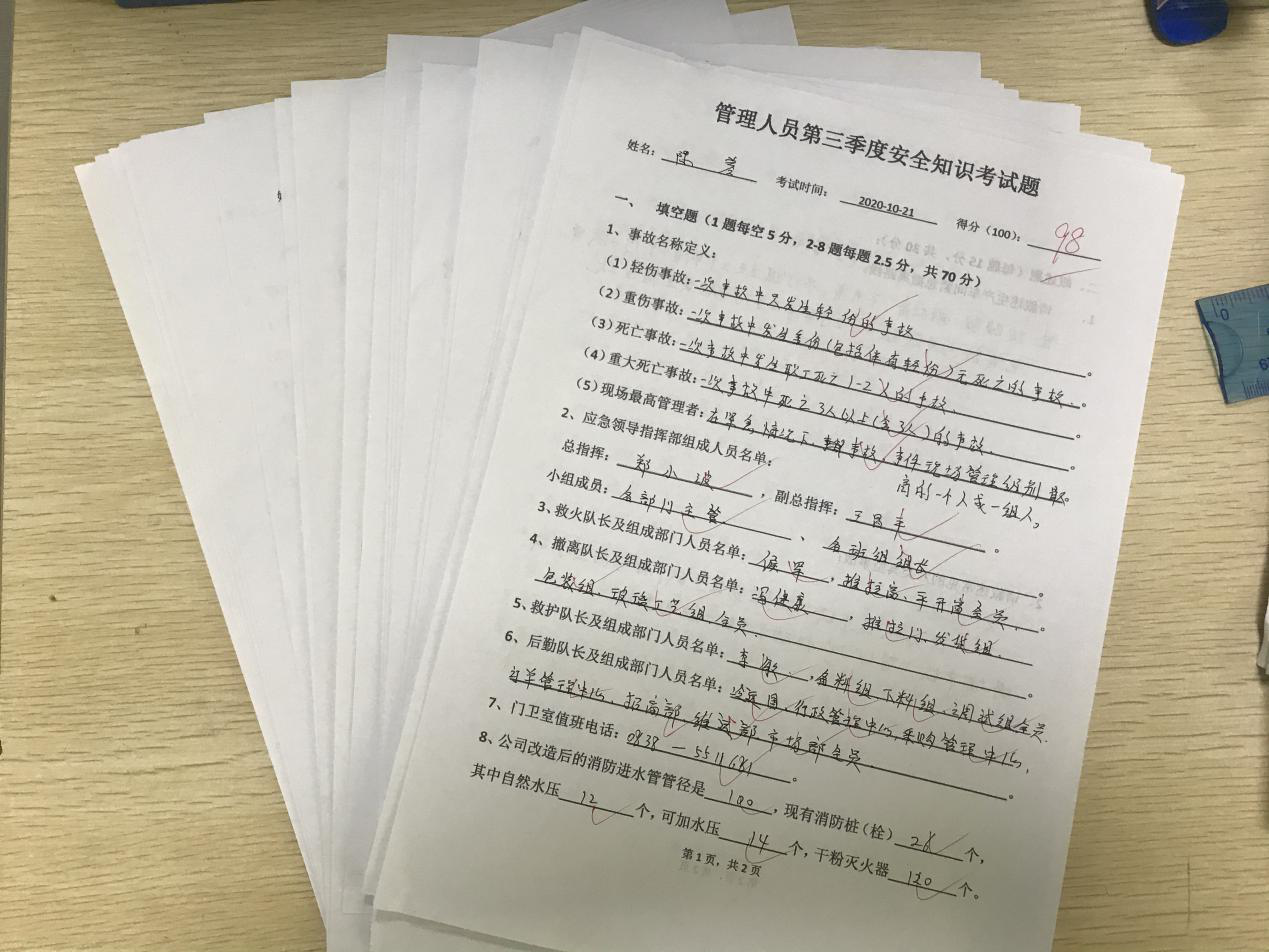 管理人员第三季度安全知识考试题
姓名：陈 菱 考试时间：2020-10-21 得分（100）：98
一、 填空题（1题每空5分，2-8题每题2.5分，共70分）
1、事故名称定义：
（1）轻伤事故：一次事故中只发生轻伤的事故。
（2）重伤事故：一次事故中发生重伤（包括伴有轻伤）无死亡的事故。
（3）死亡事故：一次事故中发生职工死亡1-2人的事故。
（4）重大死亡事故：一次事故中死亡3人以上（含3人）的事故。
（5）现场最高管理者：在紧急情况下，事故、事件现场管理级别最
高的一个人或一组人。
2、应急领导指挥部组成人员名单：
总指挥：郑小波，副总指挥：丁昌平。
小组成员：各部门主管、各班组组长。
3、救火队长及组成部门人员名单：侯军，推拉窗、平开窗全员。
4、撤离队长及组成部门人员名单：冯健康，推拉门、发货组、
包装组、玻璃工艺组全员。
5、救护队长及组成部门人员名单：李敏，备料组、下料组、调试组全员。
6、后勤队长及组成部门人员名单：行政管理中心、采购管理中心、
订单管理中心、招商部、维试部、市场部全员。
7、门卫室值班电话：0838—5511681。
8、公司改造后的消防进水管管径是100，现有消防桩（栓）26个，
其中自然水压12个，可加水压14个，干粉灭火器120个。
第1页，共2页
0